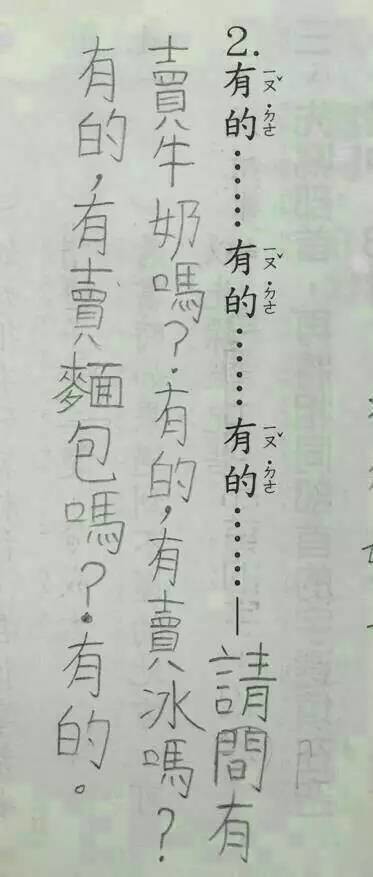 2.
有ㄧㄡˇ的˙ㄉㄜ……有ㄧㄡˇ的˙ㄉㄜ……有ㄧㄡˇ的˙ㄉㄜ……—請問有
賣牛奶嗎?有的,有賣冰嗎?
有的,有賣麵包嗎?有的。